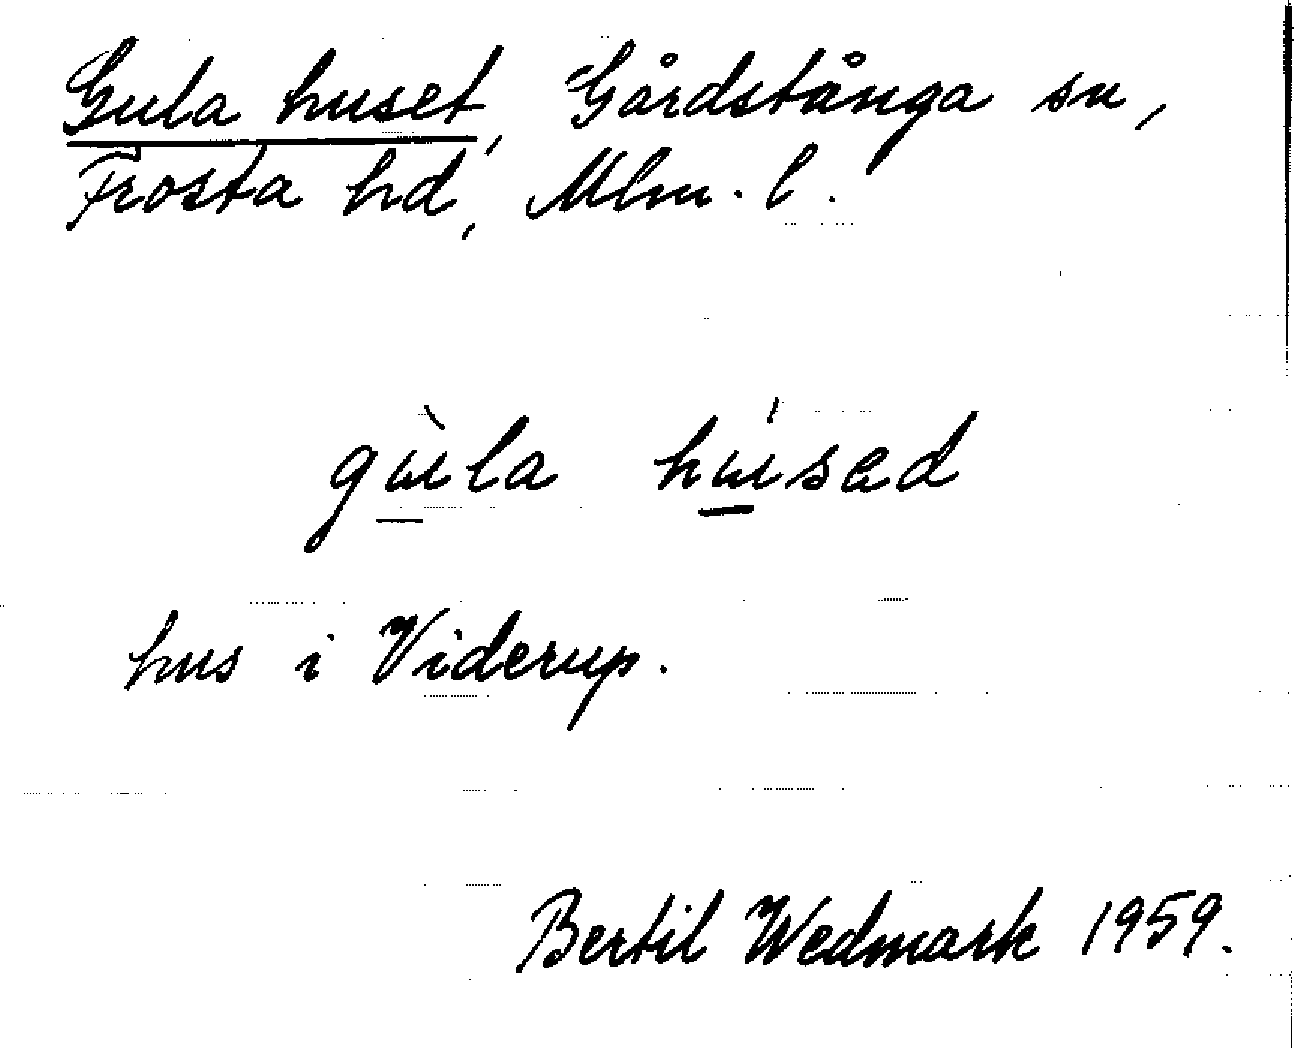 Gula huset, Gårdstånga sn,
Frosta hd, Mlm. l.
gù̲la hú̲sad
hus i Viderup.
Bertil Wedmark 1959.